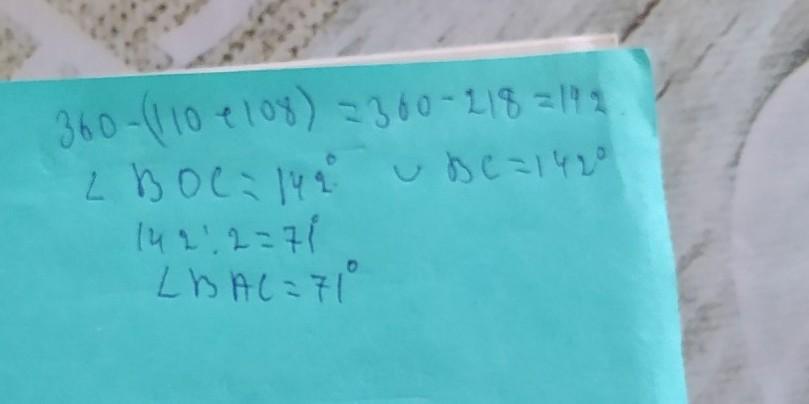 360-(110+108) = 360-218 = 142
∠ BOC = 142° ◡ BC = 142°
142:2 = 71°
∠BAC = 71°